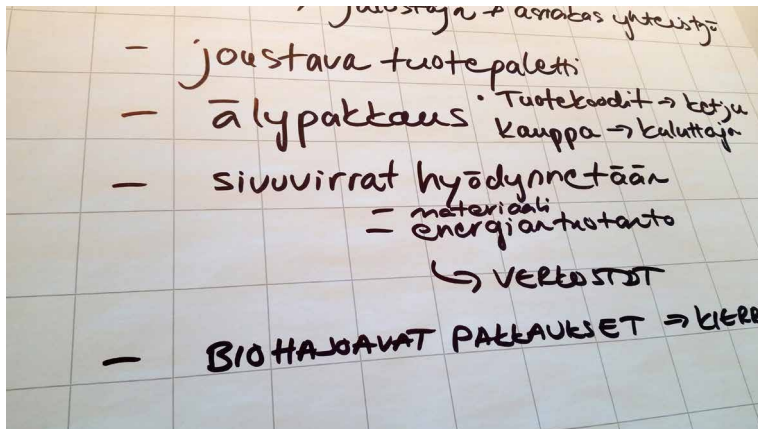 + asiakas yhteistyö
- joustava tuotepaletti
- älypakkaus • Tuotekoodit → ketju
kauppa → kuluttaja
- sivuvirrat hyödynnetään
- materiaali
- energiantuotanto
↳ VERKOSTOT
- BIOHAJOAVAT PAKKAUKSET ⇒